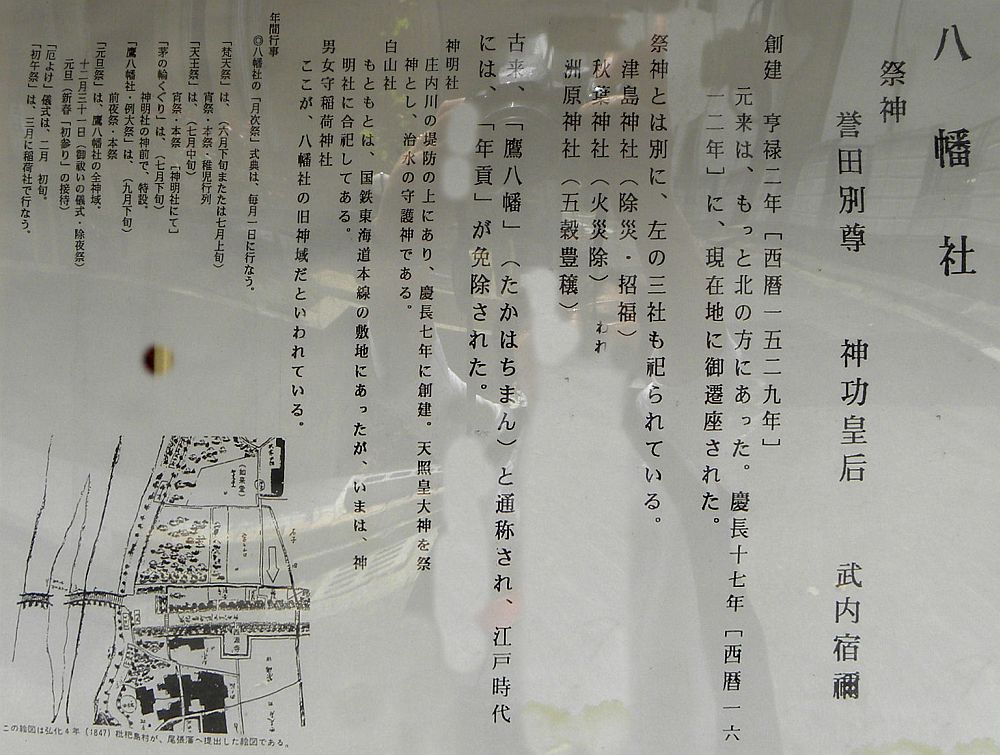 八幡社
祭神
誉田別尊 神功皇后 武内宿禰
創建 亨禄二年[西暦一五二九年]
元来は、もっと北の方にあった。慶長十七年[西暦一六
一二年]に、現在地に御遷座された。
祭神とは別に、左の三社も祀られている。
津島神社(除災・招福)
秋葉神社(火災除)
洲原神社(五穀豊穣)
われ
古来、「鷹八幡」(たかはちまん)と通称され、江戸時代
には、「年貢」が免除された。
神明社
庄内川の堤防の上にあり、慶長七年に創建。天照皇大神を祭
神とし、治水の守護神である。
白山社
もともとは、国鉄東海道本線の敷地にあったが、いまは、神
明社に合祀してある。
男女守稲荷神社
ここが、八幡社の旧神域だといわれている。
年間行事
◎八幡社の「月次祭」式典は、毎月一日に行なう。
「梵天祭」は、(六月下旬またたは七月上旬)
宵祭・本祭・稚児行列
「天王祭」は、(七月中旬)
宵祭・本祭 [神明社にて]
「茅の輪くぐり」は、(七月下旬)
神明社の神前で、特設。
「鷹八幡社・例大祭」は、(九月下旬)
前夜祭・本祭
「元旦祭」は、鷹八幡社の全神域。
十二月三十一日(御祓いの儀式・除夜祭)
元旦(新春「初参り」の接待)
「厄よけ」儀式は、二月 初旬。
「初午祭」は、三月に稲荷社で行なう。
(如来堂)
この絵図は弘化4年(1847)枇杷島村が、尾張藩へ提出した絵図である。